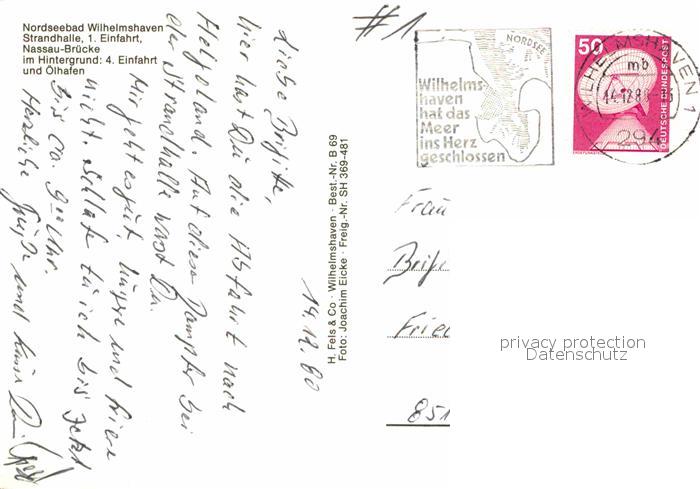 Nordseebad Wilhelmshaven
Strandhalle, 1. Einfahrt,
Nassau-Brücke
im Hintergrund: 4. Einfahrt
und Ölhafen
#1
14.12.80
Liebe Brigitte,
hier hast Du die Abfahrt nach
Helgoland. Auf diesem Dampfer bei
der Strandhalle warst Du.
Mir geht es gut, und
nicht. Schlafe täglich bis jetzt
bis ca. 9 Uhr.
Herzliche Grüße und Küsse Dein
H. Fels & Co · Wilhelmshaven · Best.-Nr. B 69
Foto: Joachim Eicke · Freig.-Nr. SH 369-481
NORDSEE
Wilhelms-
haven
hat das
Meer
ins Herz
geschlossen
WILHELMSHAVEN
mb
14.12.80
294
50
DEUTSCHE BUNDESPOST
Frau
Brigi
Fried
851
privacy protection
Datenschutz